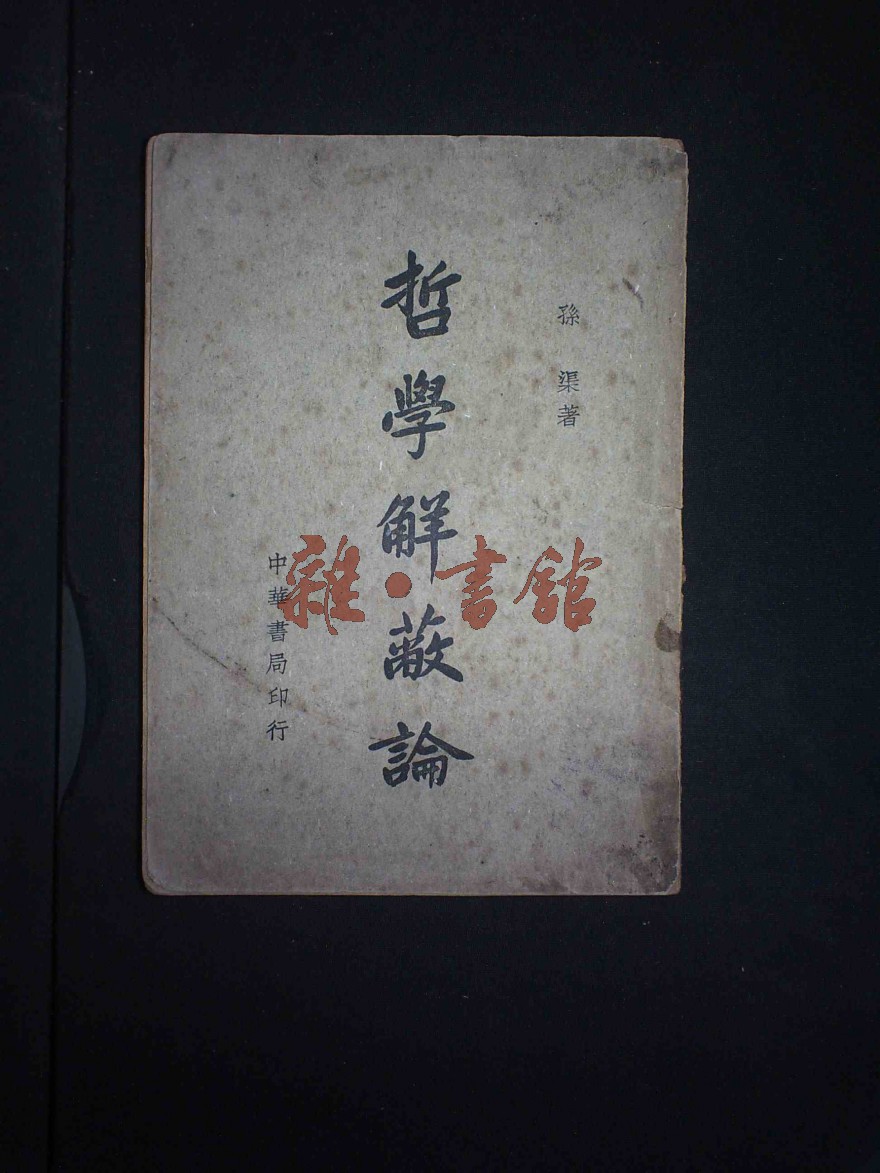 孫渠著
哲學解蔽論
中華書局印行
雜·書館